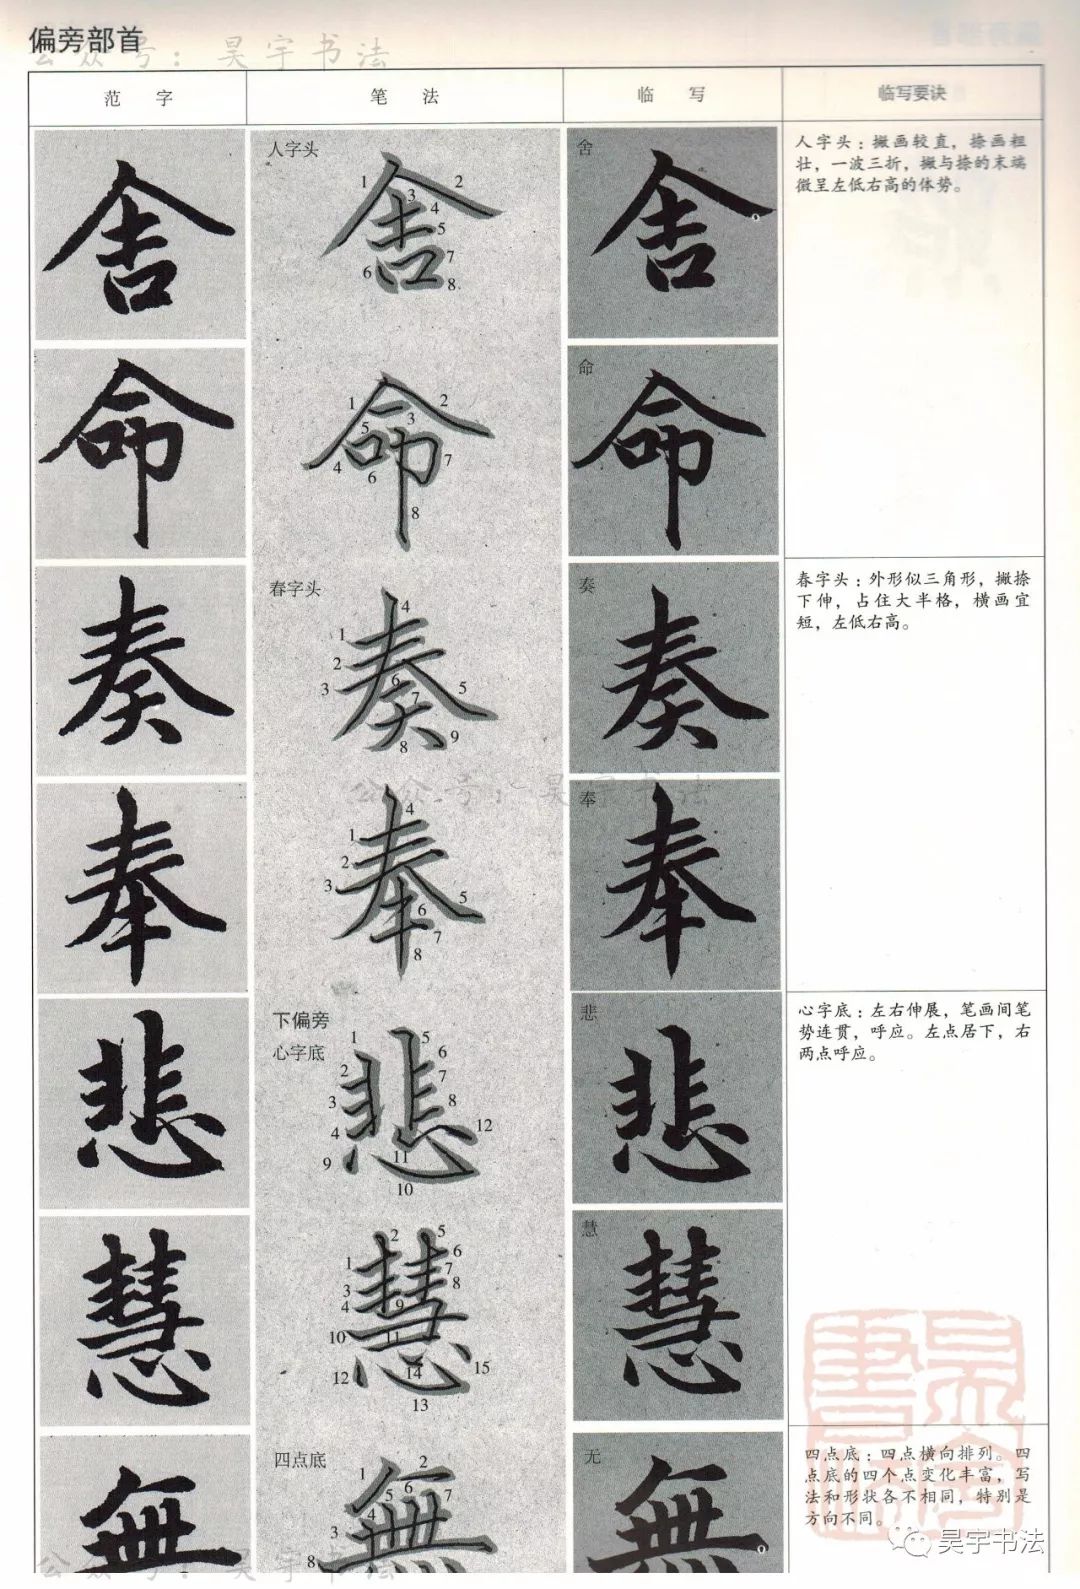 偏旁部首
公众号：昊宇书法
范 字
笔 法
临 写
临写要诀
舍
人字头
1 2 3 4 5 6 7 8
舍
舍
人字头：撇画较直，捺画粗
壮，一波三折，撇与捺的末端
微呈左低右高的体势。
命
1 2 3 4 5 6 7 8
命
命
命
奏
春字头
1 2 3 4 5 6 7 8 9
奏
奏
奏
春字头：外形似三角形，撇捺
下伸，占住大半格，横画宜
短，左低右高。
公众号：昊宇书法
奉
1 2 3 4 5 6 7 8
奉
奉
奉
悲
下偏旁
心字底
1 2 3 4 5 6 7 8 9 10 11 12
悲
悲
悲
心字底：左右伸展，笔画间笔
势连贯，呼应。左点居下，右
两点呼应。
慧
1 2 3 4 5 6 7 8 9 10 11 12 13 14 15
慧
慧
慧
無
四点底
1 2 3 4 5 6 7 8
無
无
無
四点底：四点横向排列。四
点底的四个点变化丰富，写
法和形状各不相同，特别是
方向不同。
昊宇书法
公众号：昊宇书法